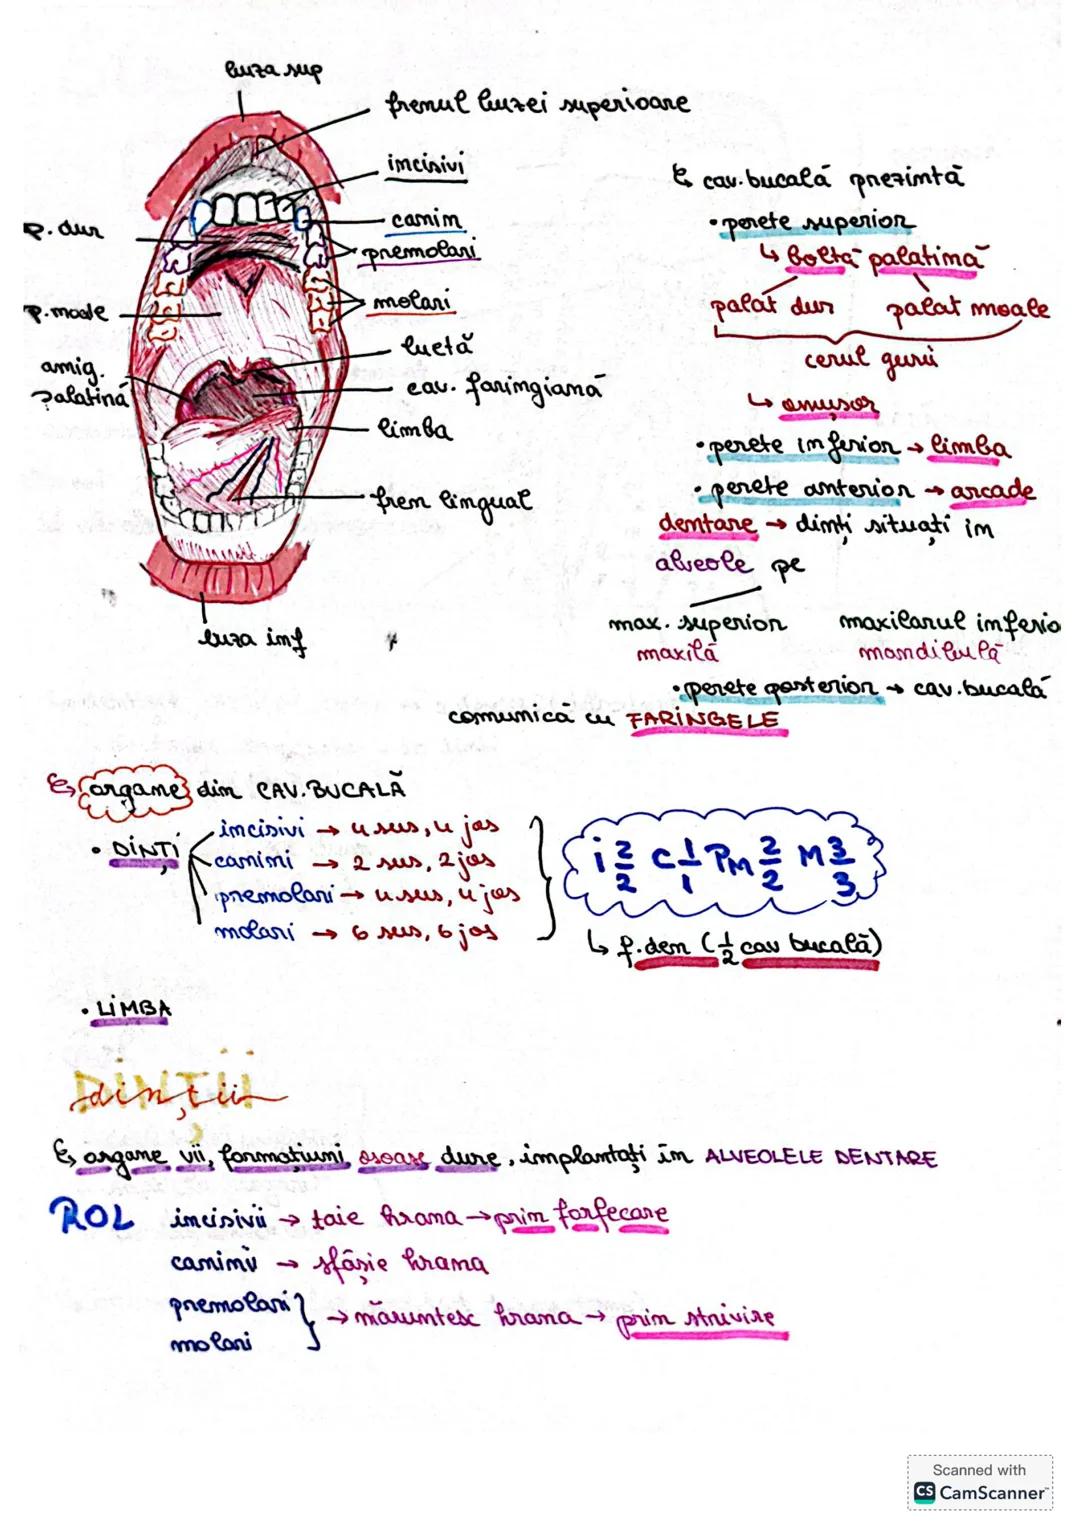 buza sup
frenul buzei superioare
incisivi
canin
premolari
molari
luetă
cav. faringiană
limba
fren lingual
p. dur
p. moale
amig.
palatină
buza inf
cav. bucală prezintă
• perete superior
↳ boltă palatină
palat dur palat moale
cerul gurii
↳ omușor
• perete inferior → limba
• perete anterior → arcade
dentare → dinți situați în
alveole pe
max. superior maxilarul inferio
maxilă mandibulă
• perete posterior → cav. bucală
comunică cu FARINGELE
organe din CAV. BUCALĂ
• DINȚI
incisivi → 4 sus, 4 jos
canini → 2 sus, 2 jos
premolari → 4 sus, 4 jos
molari → 6 sus, 6 jos
i 2/2 C 1/1 PM 2/2 M 3/3
↳ f. den (1/2 cav bucală)
• LIMBA
DINȚII
dinții
organe vii, formațiuni osoase dure, implantați în ALVEOLELE DENTARE
ROL incisivii → taie hrana → prin forfecare
caninii → sfâșie hrana
premolari
molari } → mărunțesc hrana → prin strivire
Scanned with
CS CamScanner™